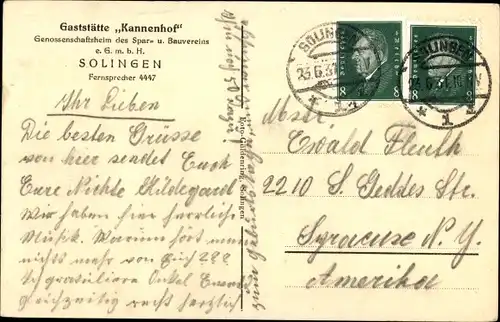 Gaststätte „Kannenhof"
Genossenschaftsheim des Spar- u. Bauvereins
e. G. m. b. H.
SOLINGEN
Fernsprecher 4447
Ihr Lieben
Die besten Grüsse
von hier sendet Euch
Eure Nichte Hildegard
Wir haben hier herrliche
Musik. Warum hört man
nichts mehr von Euch ???
Ich gratuliere Onkel Ewald
gleichzeitig recht herzlich
zum Geburtstag
SOLINGEN
8 8
SOLINGEN
8 8
Mstr
Ewald Fleuth
2210 S. Geddes Str.
Syracuse N. Y.
Amerika